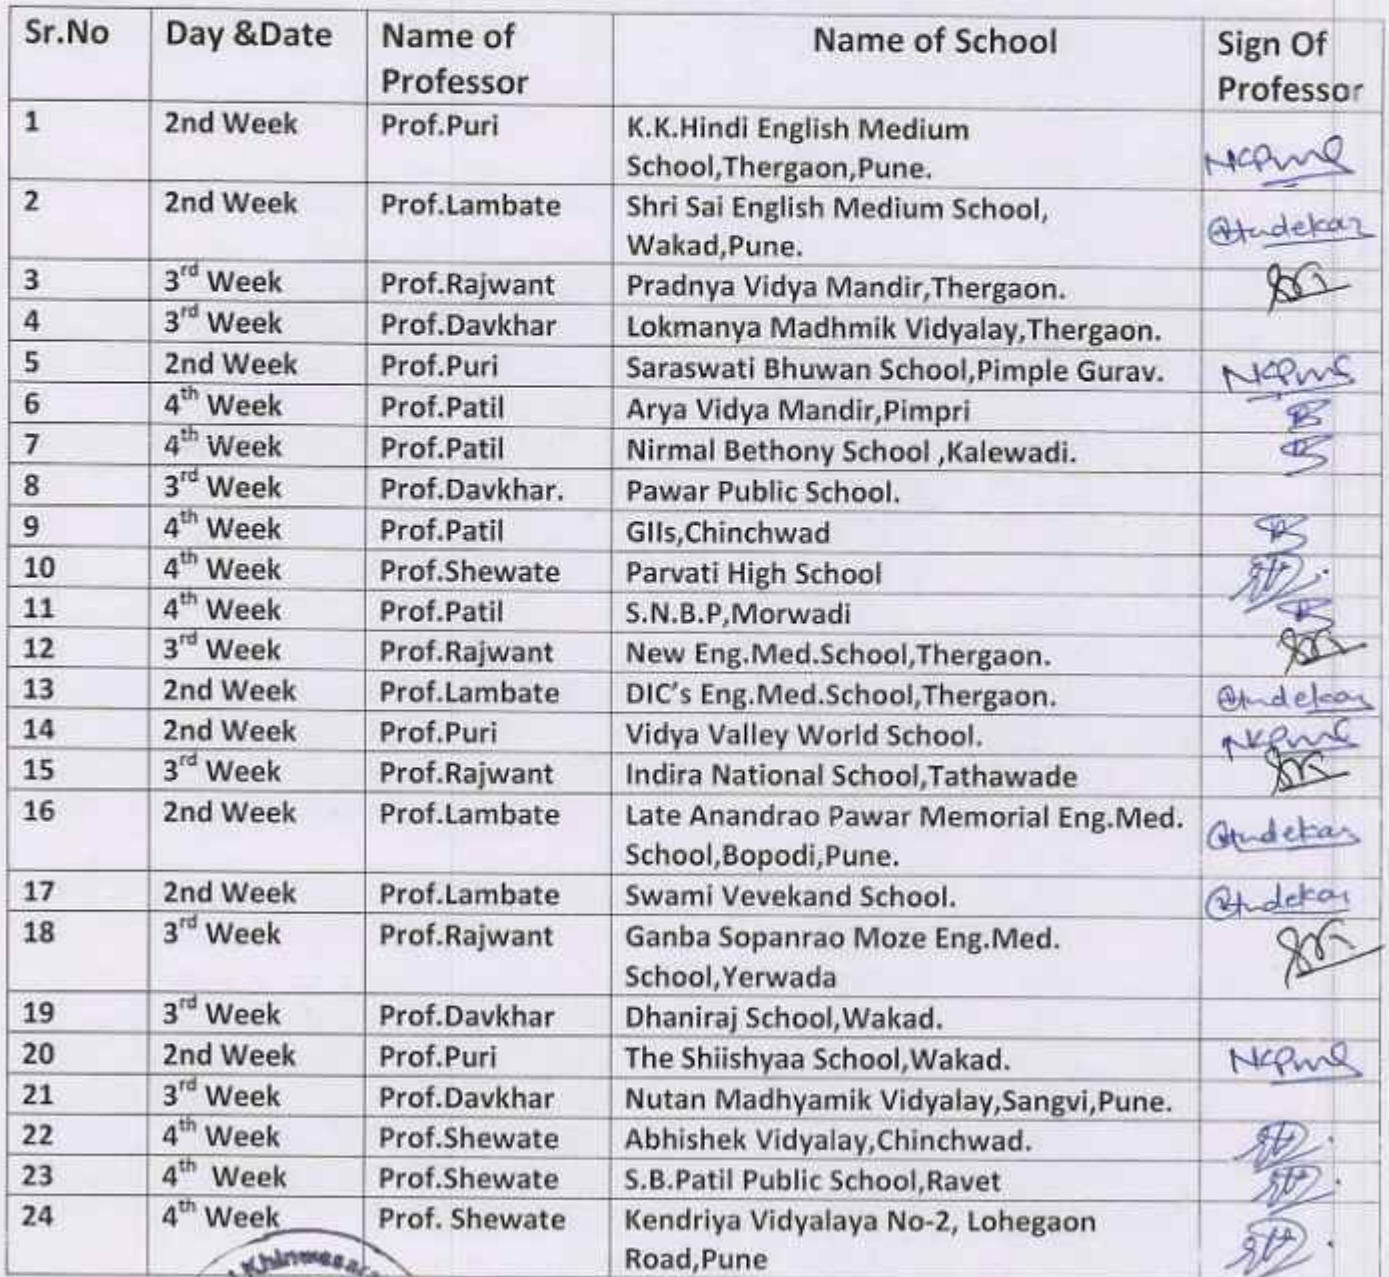 Sr.No Day &Date Name of Professor Name of School Sign Of Professor
1 2nd Week Prof.Puri K.K.Hindi English Medium
School,Thergaon,Pune.
2 2nd Week Prof.Lambate Shri Sai English Medium School,
Wakad,Pune.
3 3rd Week Prof.Rajwant Pradnya Vidya Mandir,Thergaon.
4 3rd Week Prof.Davkhar Lokmanya Madhmik Vidyalay,Thergaon.
5 2nd Week Prof.Puri Saraswati Bhuwan School,Pimple Gurav.
6 4th Week Prof.Patil Arya Vidya Mandir,Pimpri
7 4th Week Prof.Patil Nirmal Bethony School ,Kalewadi.
8 3rd Week Prof.Davkhar. Pawar Public School.
9 4th Week Prof.Patil GIIs,Chinchwad
10 4th Week Prof.Shewate Parvati High School
11 4th Week Prof.Patil S.N.B.P,Morwadi
12 3rd Week Prof.Rajwant New Eng.Med.School,Thergaon.
13 2nd Week Prof.Lambate DIC's Eng.Med.School,Thergaon.
14 2nd Week Prof.Puri Vidya Valley World School.
15 3rd Week Prof.Rajwant Indira National School,Tathawade
16 2nd Week Prof.Lambate Late Anandrao Pawar Memorial Eng.Med.
School,Bopodi,Pune.
17 2nd Week Prof.Lambate Swami Vevekand School.
18 3rd Week Prof.Rajwant Ganba Sopanrao Moze Eng.Med.
School,Yerwada
19 3rd Week Prof.Davkhar Dhaniraj School,Wakad.
20 2nd Week Prof.Puri The Shiishyaa School,Wakad.
21 3rd Week Prof.Davkhar Nutan Madhyamik Vidyalay,Sangvi,Pune.
22 4th Week Prof.Shewate Abhishek Vidyalay,Chinchwad.
23 4th Week Prof.Shewate S.B.Patil Public School,Ravet
24 4th Week Prof. Shewate Kendriya Vidyalaya No-2, Lohegaon
Road,Pune